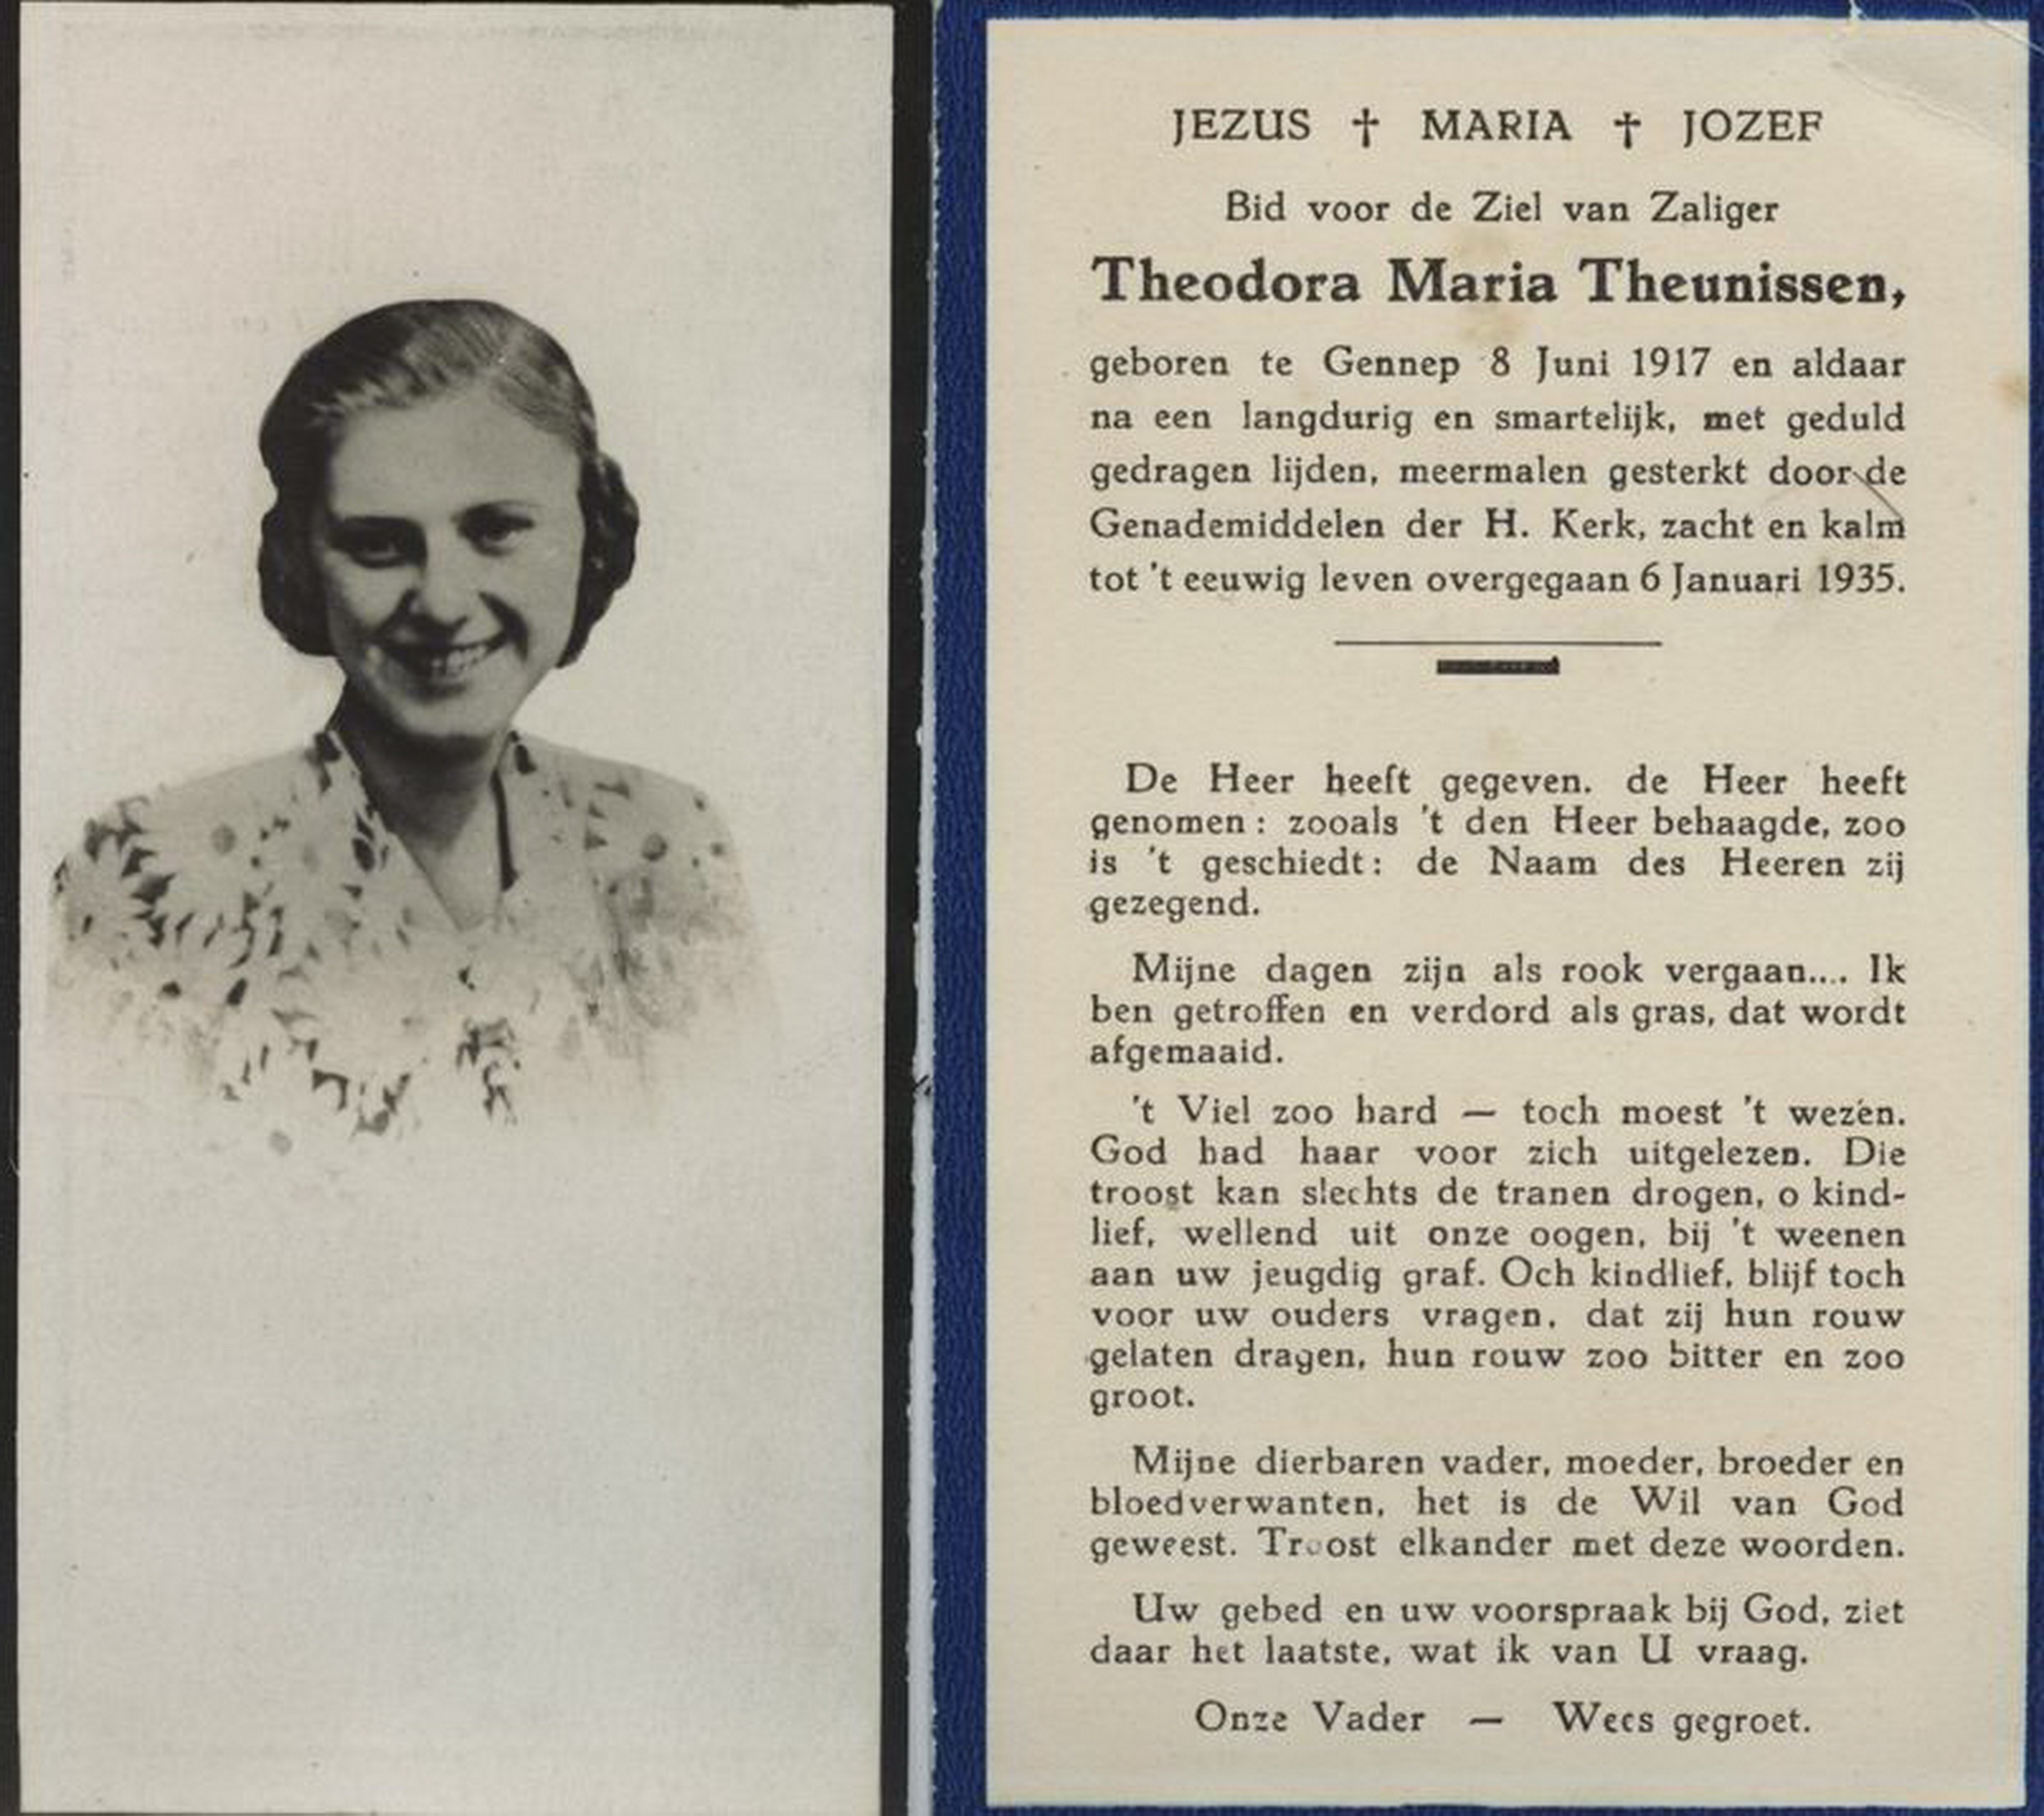 JEZUS † MARIA † JOZEF
Bid voor de Ziel van Zaliger
Theodora Maria Theunissen,
geboren te Gennep 8 Juni 1917 en aldaar
na een langdurig en smartelijk, met geduld
gedragen lijden, meermalen gesterkt door de
Genademiddelen der H. Kerk, zacht en kalm
tot 't eeuwig leven overgegaan 6 Januari 1935.
De Heer heeft gegeven. de Heer heeft
genomen: zooals 't den Heer behaagde, zoo
is 't geschiedt: de Naam des Heeren zij
gezegend.
Mijne dagen zijn als rook vergaan.... Ik
ben getroffen en verdord als gras, dat wordt
afgemaaid.
't Viel zoo hard — toch moest 't wezen.
God had haar voor zich uitgelezen. Die
troost kan slechts de tranen drogen, o kind-
lief, wellend uit onze oogen, bij 't weenen
aan uw jeugdig graf. Och kindlief, blijf toch
voor uw ouders vragen, dat zij hun rouw
gelaten dragen, hun rouw zoo bitter en zoo
groot.
Mijne dierbaren vader, moeder, broeder en
bloedverwanten, het is de Wil van God
geweest. Troost elkander met deze woorden.
Uw gebed en uw voorspraak bij God, ziet
daar het laatste, wat ik van U vraag.
Onze Vader — Wees gegroet.